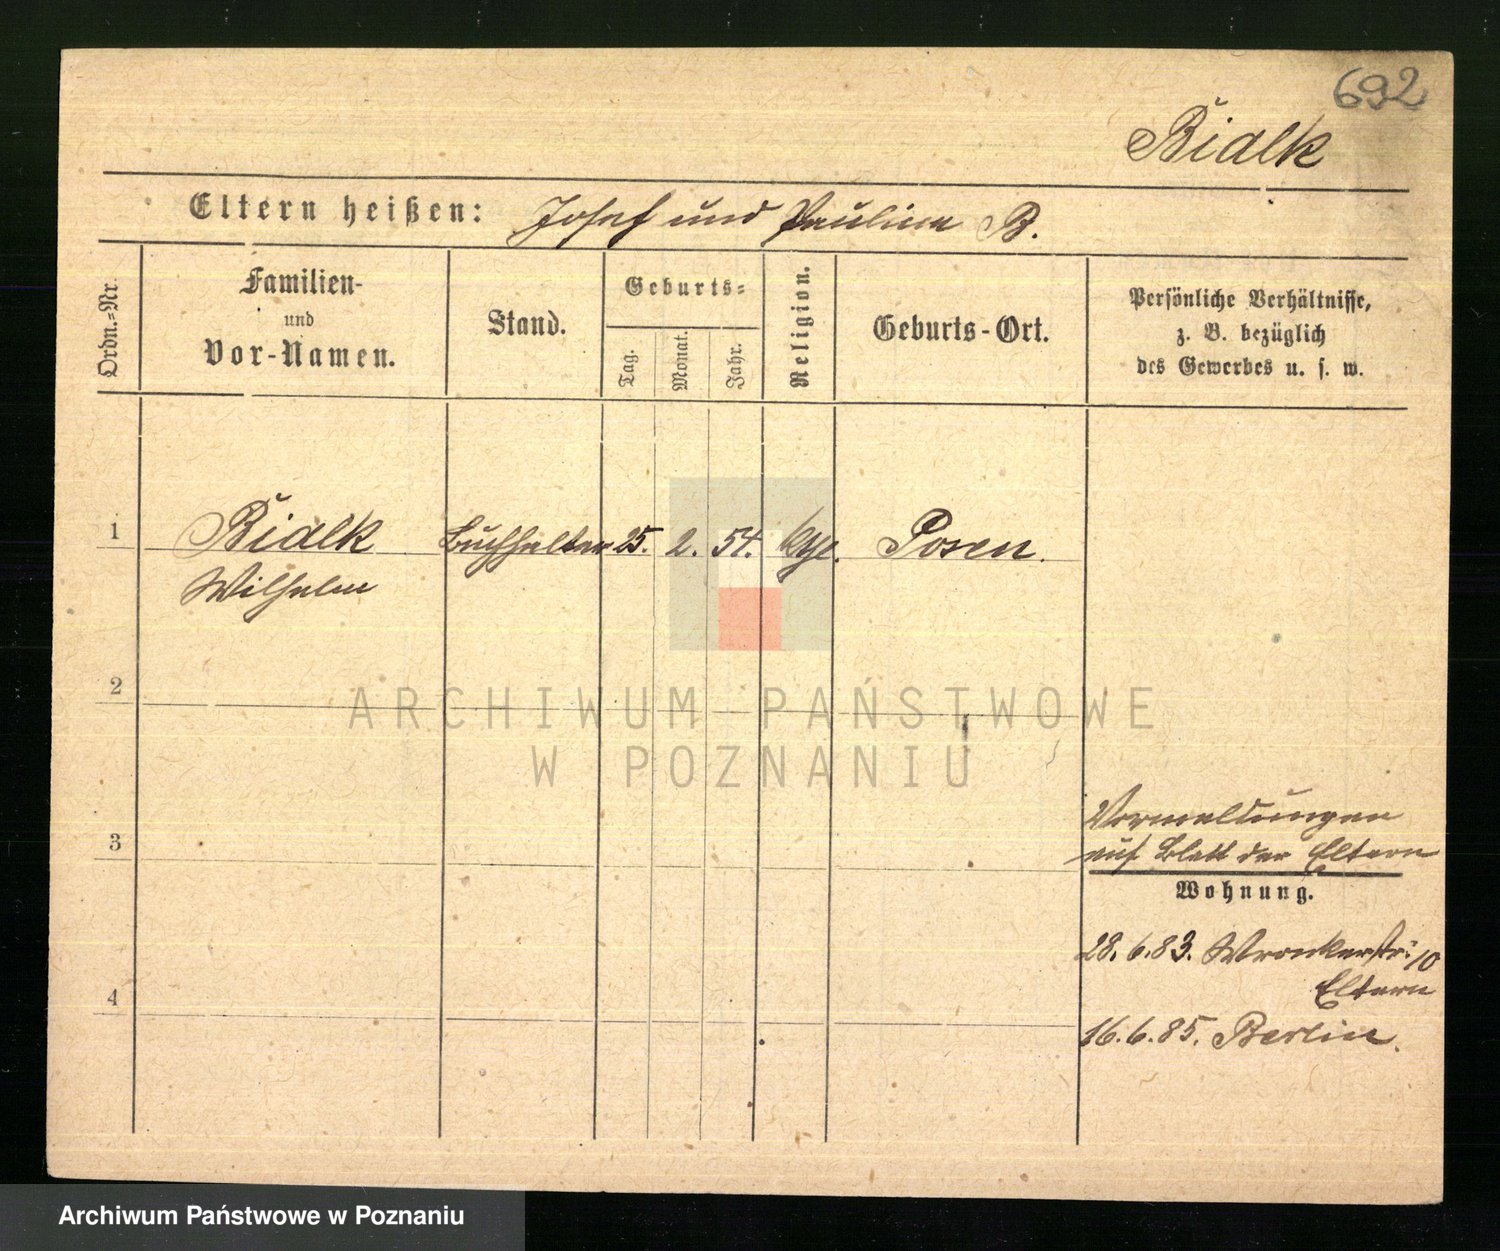 692
Bialk
Eltern heißen: Josef und Paulina B.
Ordn.-Nr.
Familien-
und
Vor-Namen.
Stand.
Geburts-
Tag.
Monat.
Jahr.
Religion.
Geburts-Ort.
Persönliche Verhältnisse,
z. B. bezüglich
des Gewerbes u. s. w.
1 Bialk Buchhalter 25. 2. 54. Posen.
Wilhelm
2
ARCHIWUM PAŃSTWOWE
W POZNANIU
3
Vormeldungen
auf Blatt der Eltern
Wohnung.
28. 6. 83. Wronkerstr: 10
Eltern
4
16. 6. 85. Berlin.
Archiwum Państwowe w Poznaniu